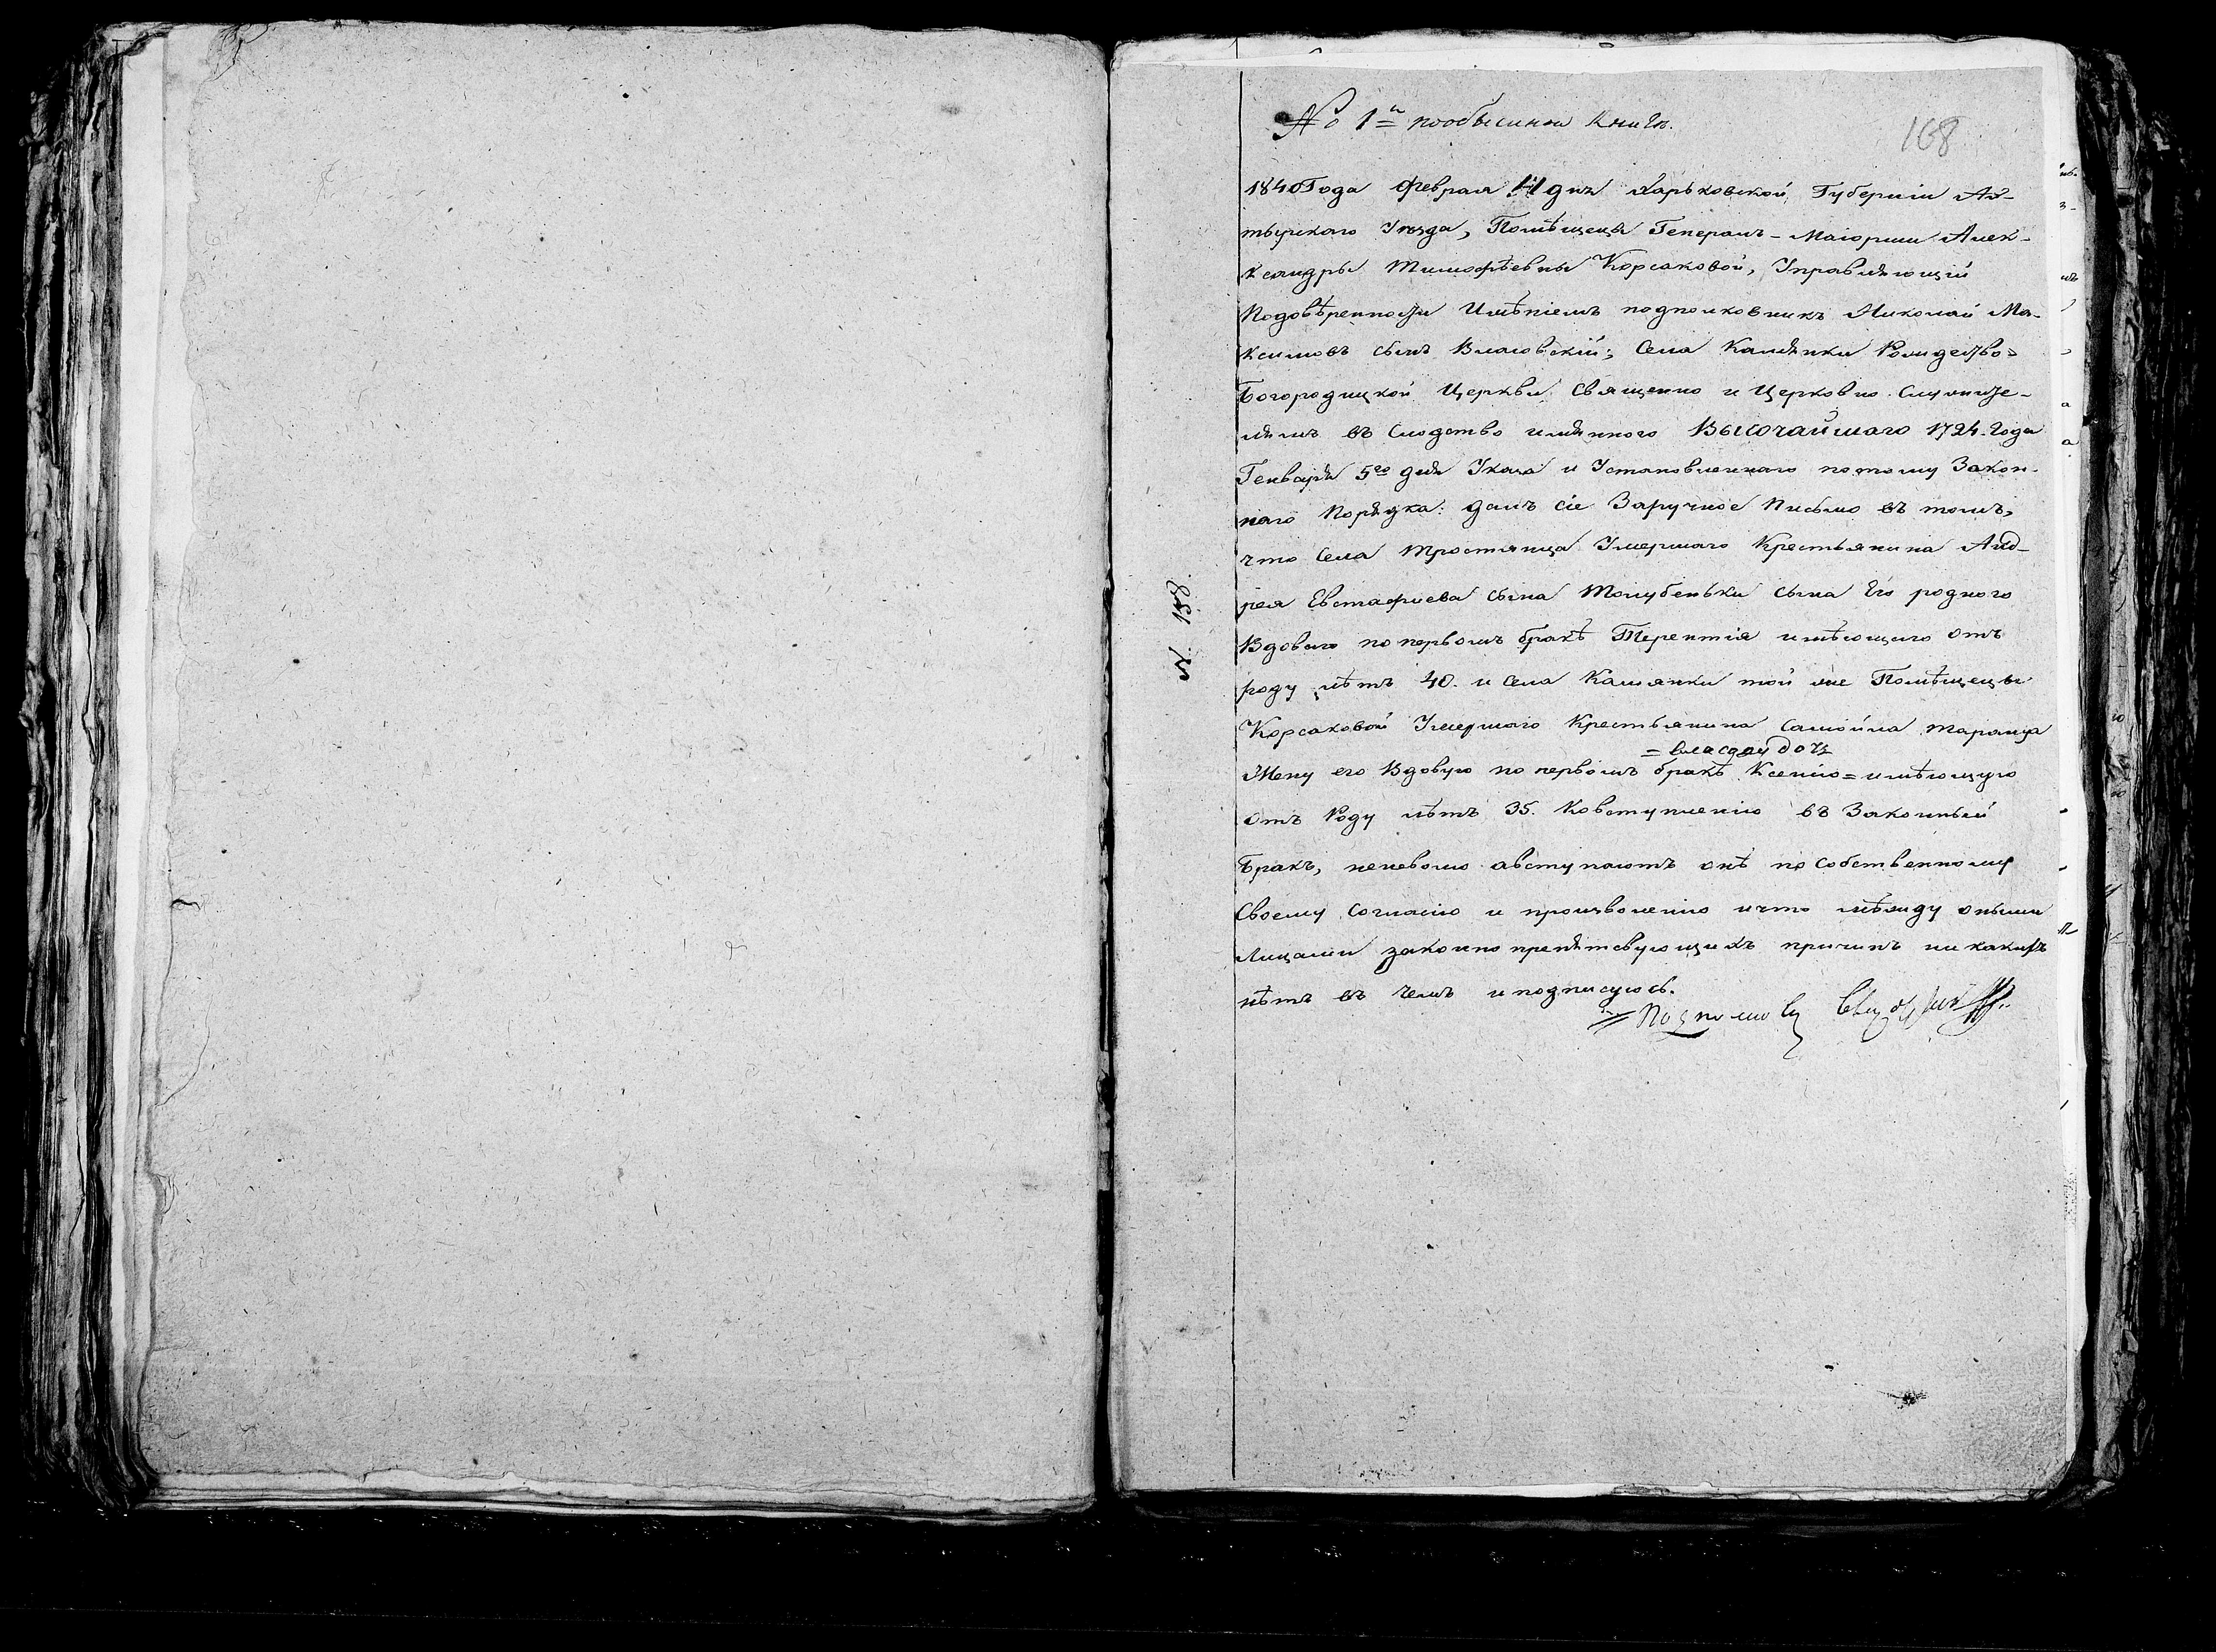 № 1й пообыскной Книги.
168
1840 Года Февраля 11 дня Харьковской Губерніи Ах-
тырскаго Уѣзда, Помѣщецы Генералъ-Маіорши Алек-
ксандры Тимофѣевны Корсаковой, Управляющій
Подовѣренности Имѣніемъ подполковникъ Николай Ма-
ксимовъ сынъ; Села Камянки Рождество-
Богородицкой Церкви Священно и Церковно Служите-
лямъ въ Слюдство имянного Высочайшаго 1724. Года
Генваря 5го дня Указа и Установленнаго потому Закон-
наго Порядка: далъ сіе Заручное Письмо въ томъ,
что Села Тростянца Умершаго Крестьянина Анд-
рея Евстафиева сына Толубеньки сына Его родного
Вдоваго по первомъ бракѣ Терентія имѣющаго отъ
роду лѣтъ 40. и Села Камянки той же Помѣщецы
Корсаковой Умершаго Крестьянина Самойла Таранца
Жену его Вдовую по первомъ бракѣ Ксенію = имѣющую
отъ Роду лѣтъ 35. Ковступленію въ Законный
Бракъ, неневолю авступаютъ онѣ по собственному
Своему Согласію и произволенію ичто мѣжду оными
Лицами законно препятсвующихъ причинъ ни какихъ
нѣтъ въ чемъ и подписуюсь.
№. 158.